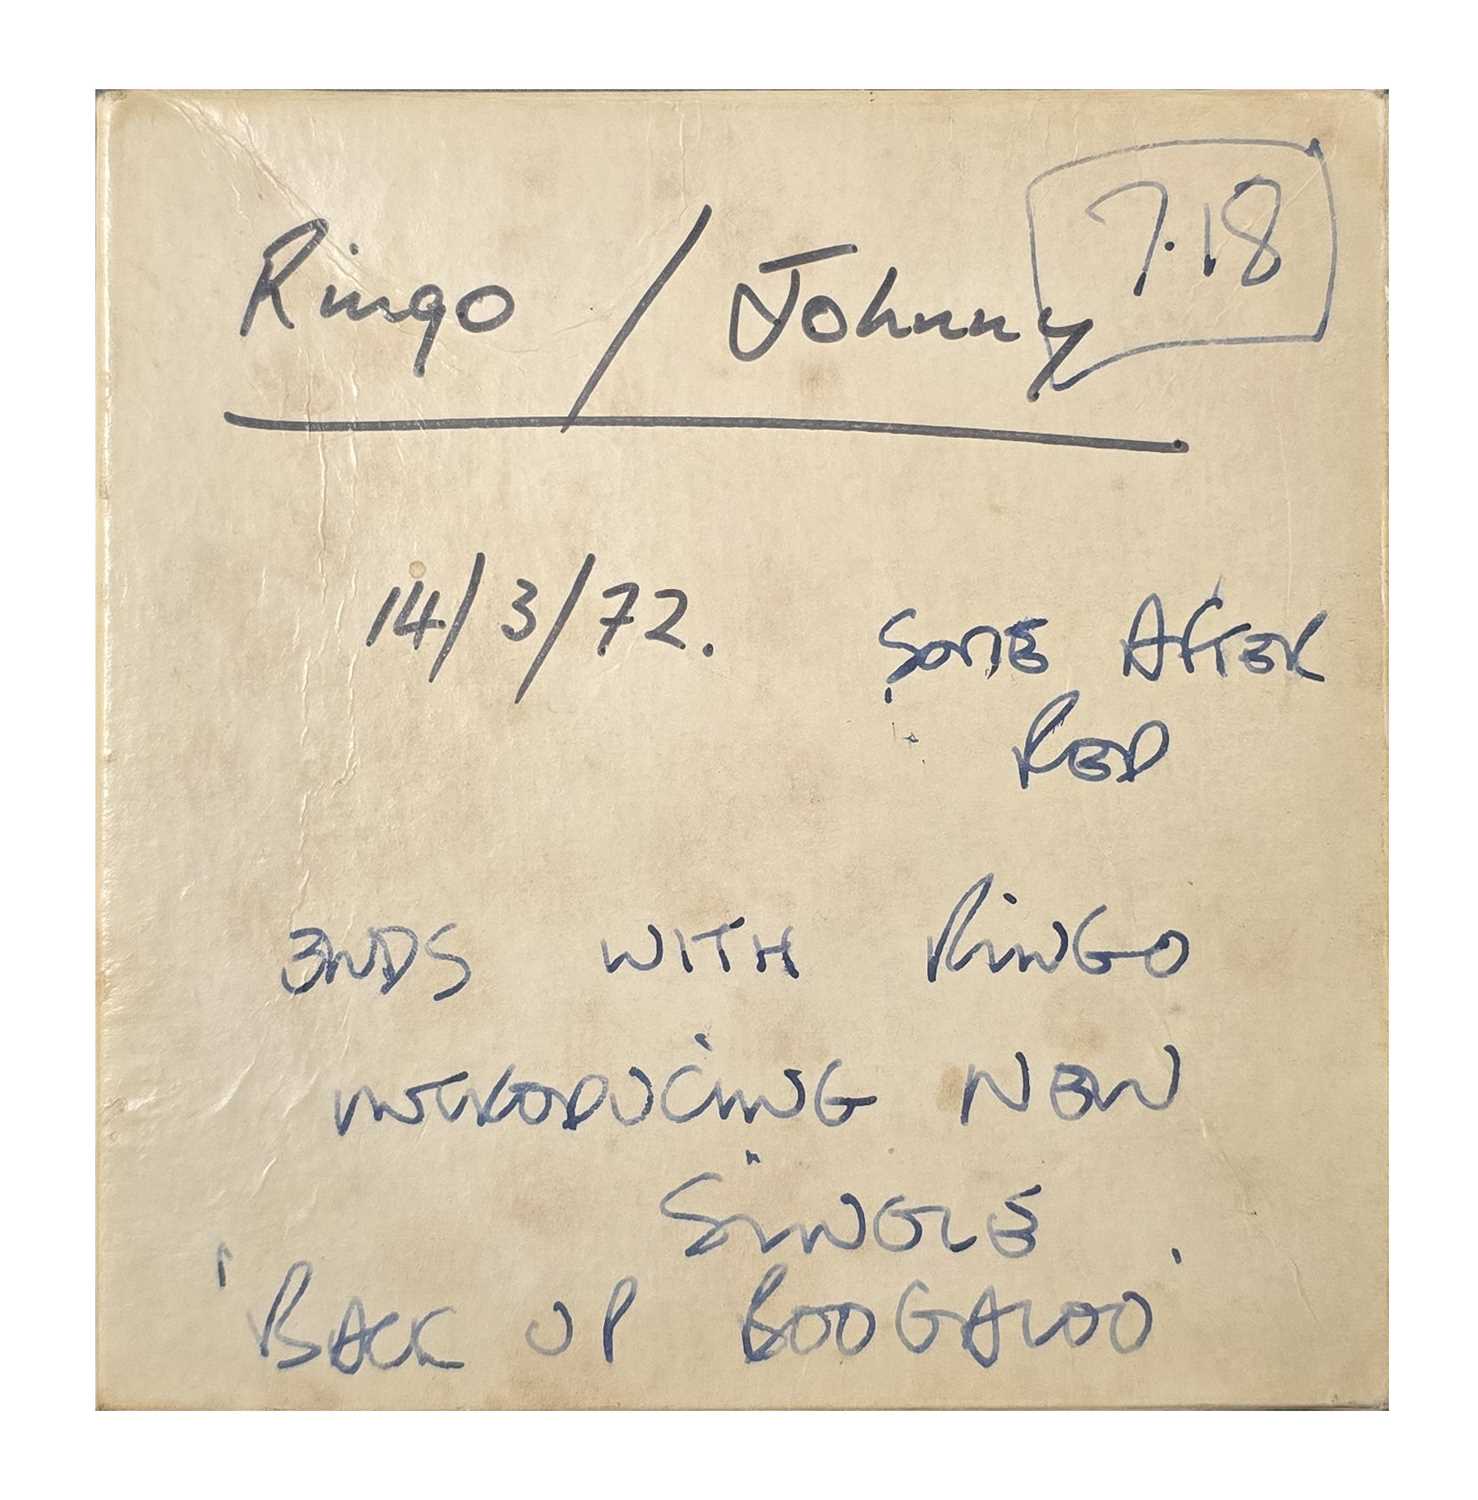 7.18
Ringo / Johnny
14/3/72.
SOME AFTER
RED
ENDS WITH RINGO
INTRODUCING NEW
SINGLE
'BACK UP BOOGALOO'